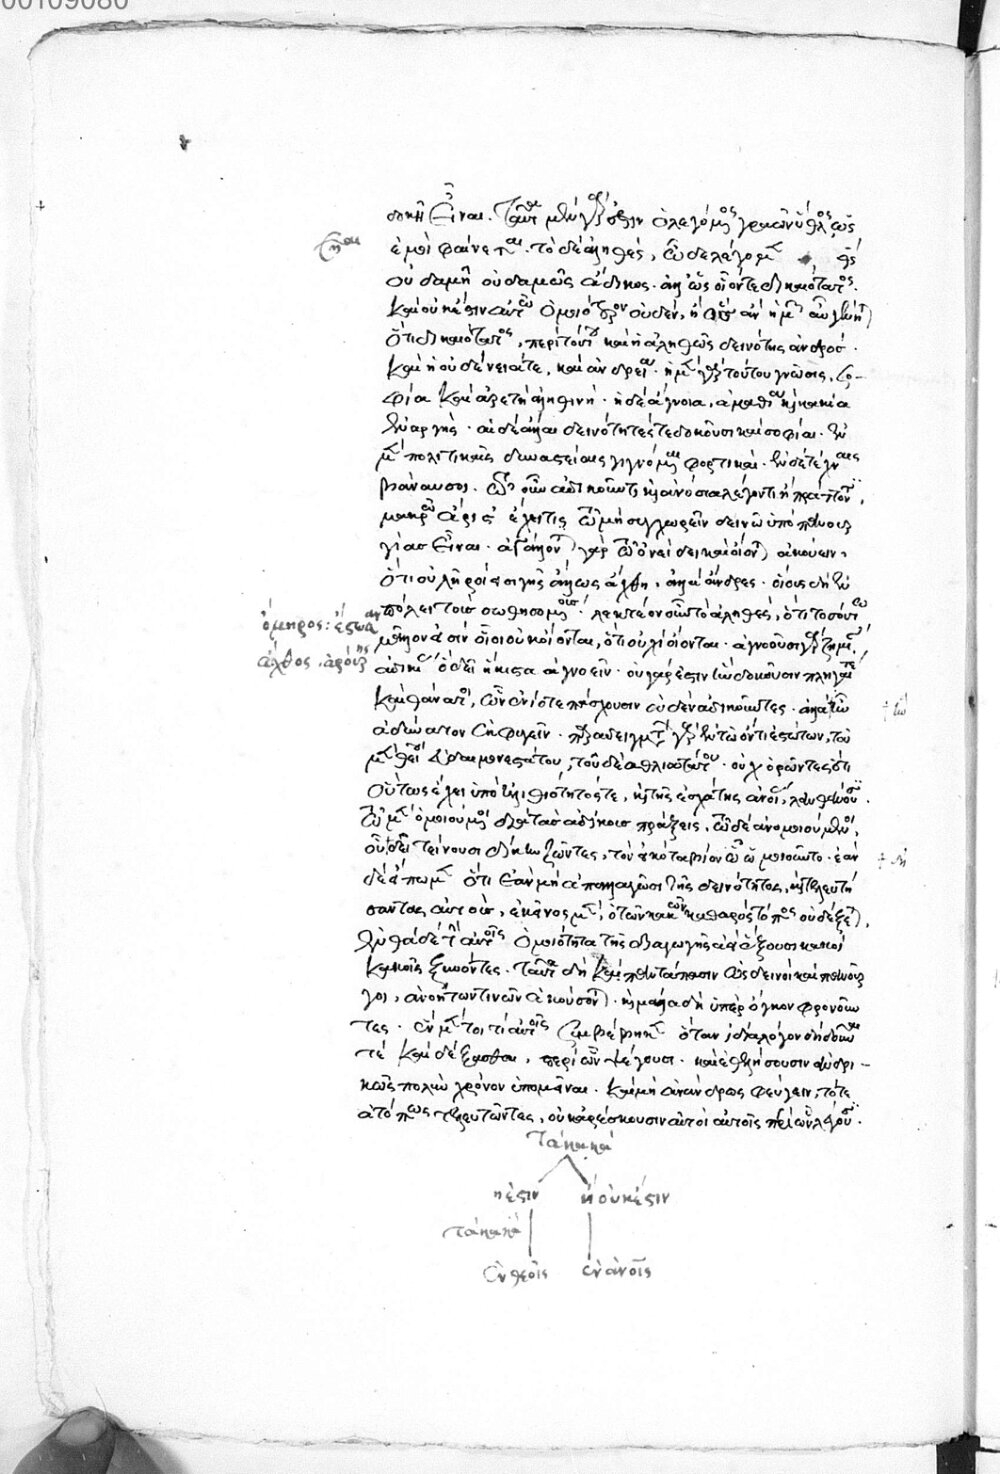 00109080
δοκῇ εἶναι. ταῦτα μὲν γάρ ἐστιν ὁ λεγόμενος γραῶν ὕθλος, ὡς
ἐμοὶ φαίνεται. τὸ δὲ ἀληθές, ὧδε λέγομεν θεὸς
οὐδαμῆ οὐδαμῶς ἄδικος. ἀλλ' ὡς οἷόν τε δικαιότατος.
καὶ οὐκ ἔστιν αὐτῶ ὁμοιότερον οὐδὲν, ἢ ὃς ἂν ἡμῶν αὖ γένηται
ὅτι δικαιότατος, περὶ τούτου καὶ ἡ ἀληθῶς δεινότης ἀνδρός.
καὶ ἡ οὐδένειά τε, καὶ ἀνανδρεία. ἡ μὲν γὰρ τούτου γνῶσις, σο-
φία καὶ ἀρετὴ ἀληθινή. ἡ δὲ ἄγνοια, ἀμαθία καὶ κακία
ἐναργής. αἱ δὲ ἄλλαι δεινότητές τε δοκοῦσι καὶ σοφίαι. ἐν
μὲν πολιτικαῖς δυναστείαις γιγνόμεναι φορτικαί. ἐν δὲ τέχναις
βάναυσοι. τῶ οὖν ἀδικοῦντι καὶ ἀνόσια λέγοντι ἢ πράττοντι,
μακρῶ ἄριστ' ἔχει τὸ μὴ συγχωρεῖν δεινῶ ὑπὸ πανουρ
γίας εἶναι. ἀγάλλονται γὰρ τῶ ὀνείδει καὶ οἴονται ἀκούειν,
ὅτι οὐ λῆροί εἰσι γῆς ἄλλως ἄχθη, ἀλλὰ ἄνδρες. οἵους δεῖ ἐν
πόλει τοὺς σωθησομένους. λεκτέον οὖν τὸ ἀληθές, ὅτι τοσούτω
μᾶλλόν εἰσιν οἷοι οὐκ οἴονται, ὅτι οὐχὶ οἴονται. ἀγνοοῦσι γὰρ ζημίαν
ἀδικίας ὃ δεῖ ἥκιστα ἀγνοεῖν. οὐ γάρ ἐστιν ἣν δοκοῦσιν πληγαί τε
καὶ θάνατοι, ὧν ἐνίοτε πάσχουσιν οὐδὲν ἀδικοῦντες. ἀλλὰ ἣν
ἀδύνατον ἐκφυγεῖν. παραδειγμάτων γὰρ ἐν τῶ ὄντι ἑστώτων, τοῦ
μὲν θείου εὐδαιμονεστάτου, τοῦ δὲ ἀθλιωτάτου. οὐχ ὁρῶντες ὅτι
οὕτως ἔχει ὑπὸ ἠλιθιότητός τε, καὶ τῆς ἐσχάτης ἀνοίας, λανθάνουσι.
τῶ μὲν ὁμοιούμενοι διὰ τὰς ἀδίκους πράξεις, τῶ δὲ ἀνομοιούμενοι,
οὗ δὴ τίνουσι δίκην ζῶντες, τὸν εἰκότα βίον ᾧ ὁμοιοῦνται. ἐὰν
δὲ εἴπωμεν ὅτι ἐὰν μὴ ἀπαλλαγῶσι τῆς δεινότητος, καὶ τελευτή
σαντας αὐτοὺς, ἐκεῖνος μὲν, ὁ τῶν κακῶν καθαρὸς τόπος οὐ δέξεται,
ἐνθάδε τὴν αὐτοῖς ὁμοιότητα τῆς διαγωγῆς ἀεὶ ἕξουσι κακοὶ
κακοῖς ξυνόντες. ταῦτα δὴ καὶ παντάπασιν ὡς δεινοὶ καὶ πανοῦρ
γοι, ἀνοήτων τινῶν ἀκούσονται. καὶ μάλα δὴ ὑπέρογκον φρονοῦν
τες. ἓν μέντοι τι αὐτοῖς ξυμβέβηκεν ὅταν ἰδίᾳ λόγον δέῃ δοῦναί
τε καὶ δέξασθαι, περὶ ὧν ψέγουσι. καὶ ἐθελήσουσιν ἀνδρι-
κῶς πολὺν χρόνον ὑπομεῖναι. καὶ μὴ ἀνάνδρως φεύγειν, τότε
ἀτόπως τελευτῶντες, οὐκ ἀρέσκουσιν αὐτοὶ αὑτοῖς περὶ ὧν λέγουσι.
ὅμηρος: ἐτώσιον
ἄχθος ἀρούρης
τὰ κακά
ἢ ἔστιν ἢ οὐκ ἔστιν
τὰ κακά
ἐν θεοῖς ἐν ἀνοις